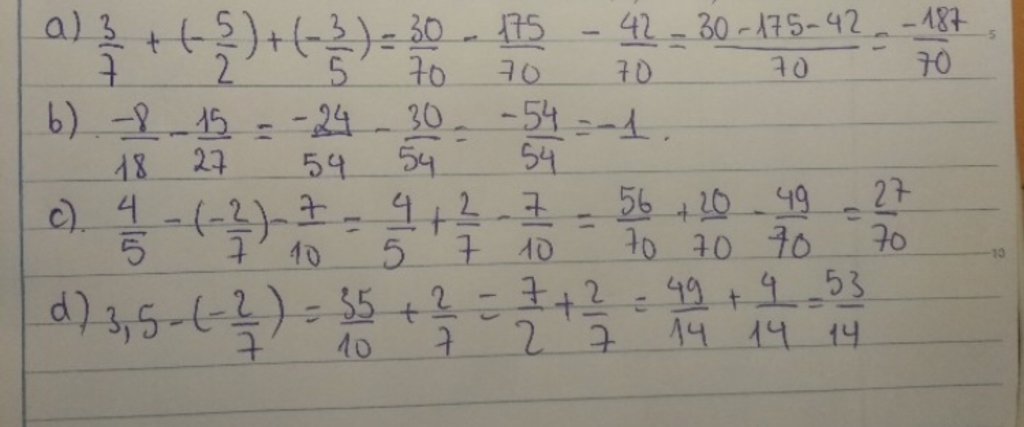 a) 3/7 + (-5/2) + (-3/5) = 30/70 - 175/70 - 42/70 = 30-175-42/70 = -187/70
b) -8/18 - 15/27 = -24/54 - 30/54 = -54/54 = -1.
c). 4/5 - (-2/7) - 7/10 = 4/5 + 2/7 - 7/10 = 56/70 + 20/70 - 49/70 = 27/70
d) 3,5 - (-2/7) = 35/10 + 2/7 = 7/2 + 2/7 = 49/14 + 4/14 = 53/14